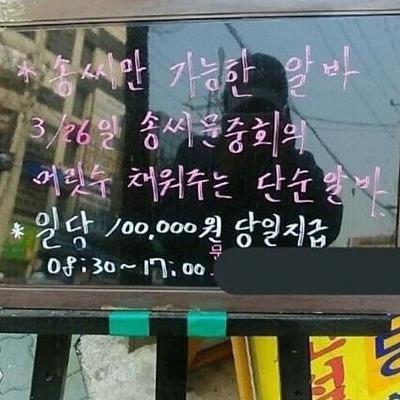 * 송씨만 가능한 알바
3/26일 송씨문중회의
머릿수 채워주는 단순알바.
* 일당 100,000원 당일지급
08:30~17:00